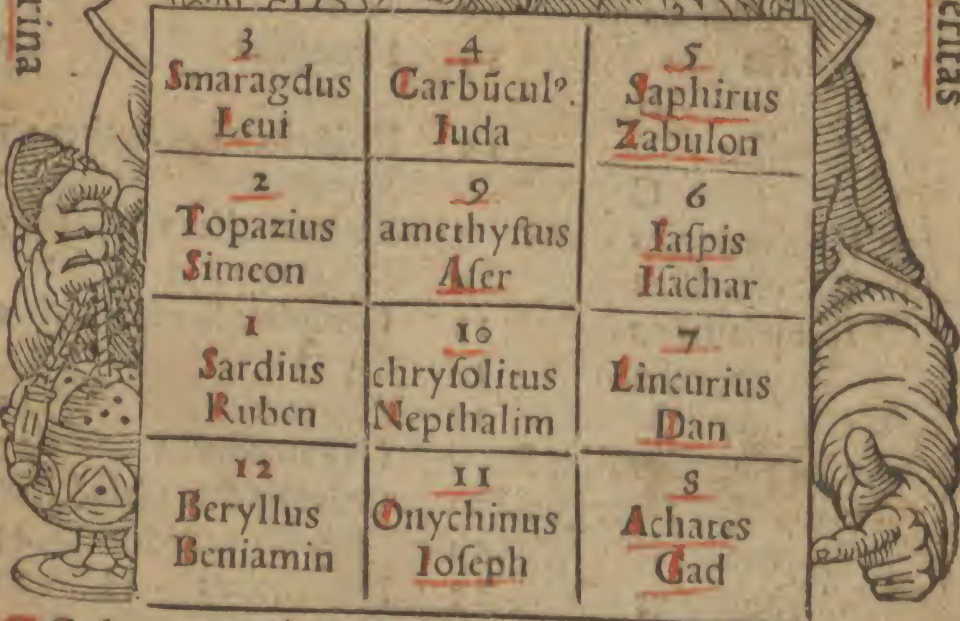 rina
eritas
3
Smaragdus
Leui
4
Carbũculꝰ.
Iuda
5
Saphirus
Zabulon
2
Topazius
Simeon
9
amethyſtus
Aſer
6
Iaſpis
Iſachar
1
Sardius
Ruben
10
chryſolitus
Nepthalim
7
Lincurius
Dan
12
Beryllus
Beniamin
11
Onychinus
Ioſeph
8
Achates
Gad